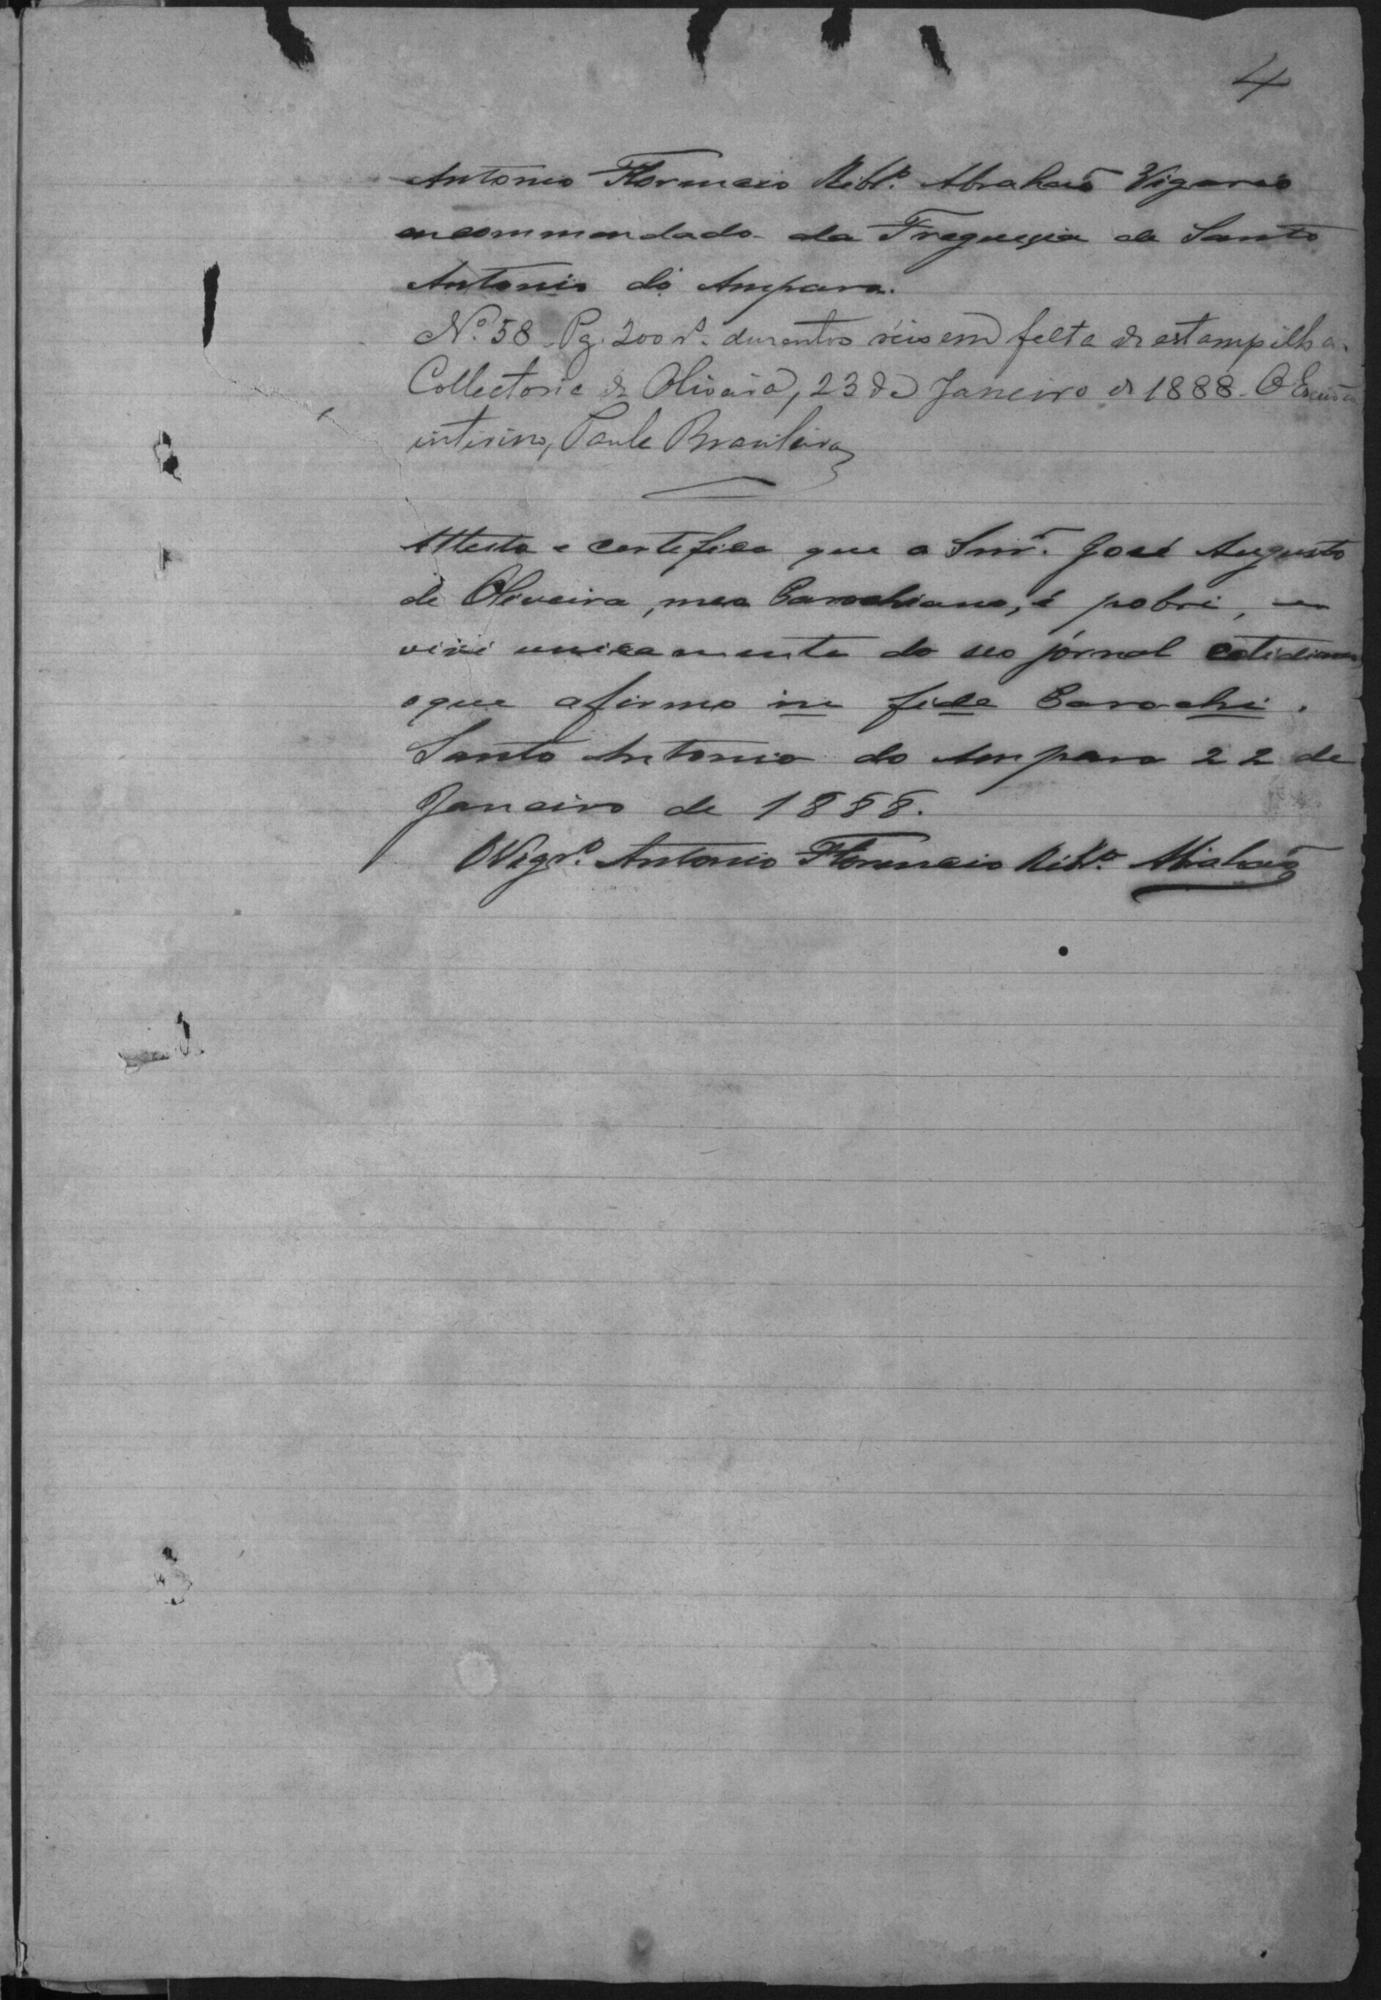 4
Antonio Florencio Ribr.º Abrahaõ Vigario
encommendado da Freguezia de Santo
Antonio do Amparo.
Nº 58 Pg. 200 rs. duzentos réis em falta de estampilha.
Collectoria de Oliveira, 23 de Janeiro de 1888. O Escrivão
interino, Paula Brasileiro
Attesto e certifico que o Snr. José Augusto
de Oliveira, meo Parochiano, é pobre, e
vive unicamente do seo jornal cotidiano
o que afirmo in fide Parochi.
Santo Antonio do Amparo 22 de
Janeiro de 1888.
O Vigr.º Antonio Florencio Ribr.º Abrahaõ